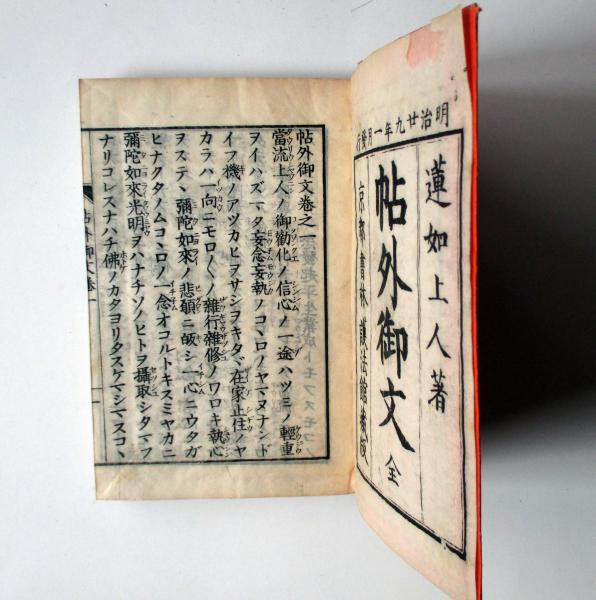 明治廿九年一月發行
蓮如上人著
帖外御文 全
京都書林 護法館藏版
帖外御文卷之一
當流上人ノ御勸化ノ信心ノ一途ハツミノ輕重
ヲイハズマタ妄念妄執ノコヽロノヤマヌナンド
イフ機ノアツカヒヲサシヲキタヾ在家止住ノヤ
カラハ一向ニモロ〳〵ノ雜行雜修ノワロキ執心
ヲステヽ彌陀如來ノ悲願ニ皈シ一心ニウタガ
ヒナクタノムコヽロノ一念オコルトキスミヤカニ
彌陀如來光明ヲハナチソノヒトヲ攝取シタマフ
ナリコレスナハチ佛ノカタヨリタスケマシマスコヽ
帖外御文卷一